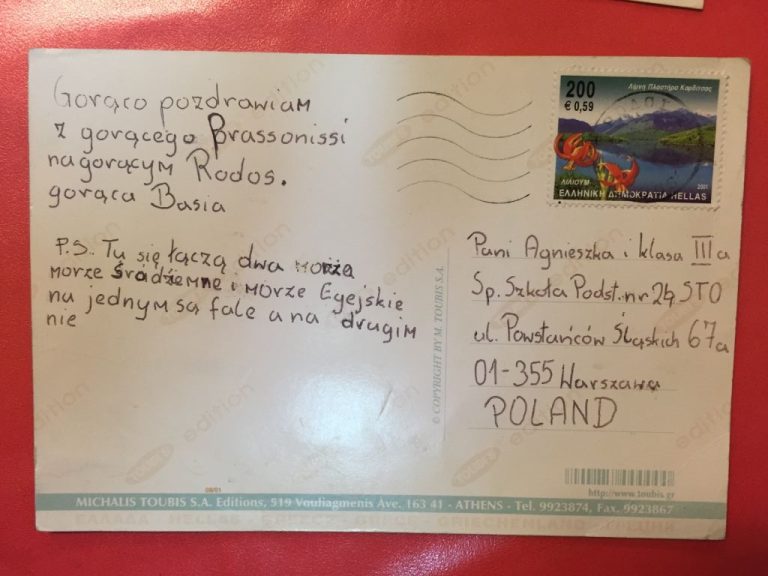 Gorąco pozdrawiam
z gorącego Brassonissi
na gorącym Rodos.
gorąca Basia
P.S. Tu się łączą dwa morza
morze śródziemne i morze Egejskie
na jednym są fale a na drugim
nie
200
€ 0,59
Λίμνη Πλαστήρα Καρδίτσας
ΛΙΛΙΟΥΜ
2001
ΕΛΛΗΝΙΚΗ ΔΗΜΟΚΡΑΤΙΑ HELLAS
Pani Agnieszka i klasa IIIa
Sp. Szkoła Podst. nr 24 STO
ul. Powstańców Śląskich 67a
01-355 Warszawa
POLAND
© COPYRIGHT BY M. TOUBIS S.A.
08/01
http://www.toubis.gr
MICHALIS TOUBIS S.A. Editions, 519 Vouliagmenis Ave. 163 41 - ATHENS - Tel. 9923874, Fax. 9923867
ΕΛΛΑΔΑ HELLAS GREECE GRECE GRIECHENLAND